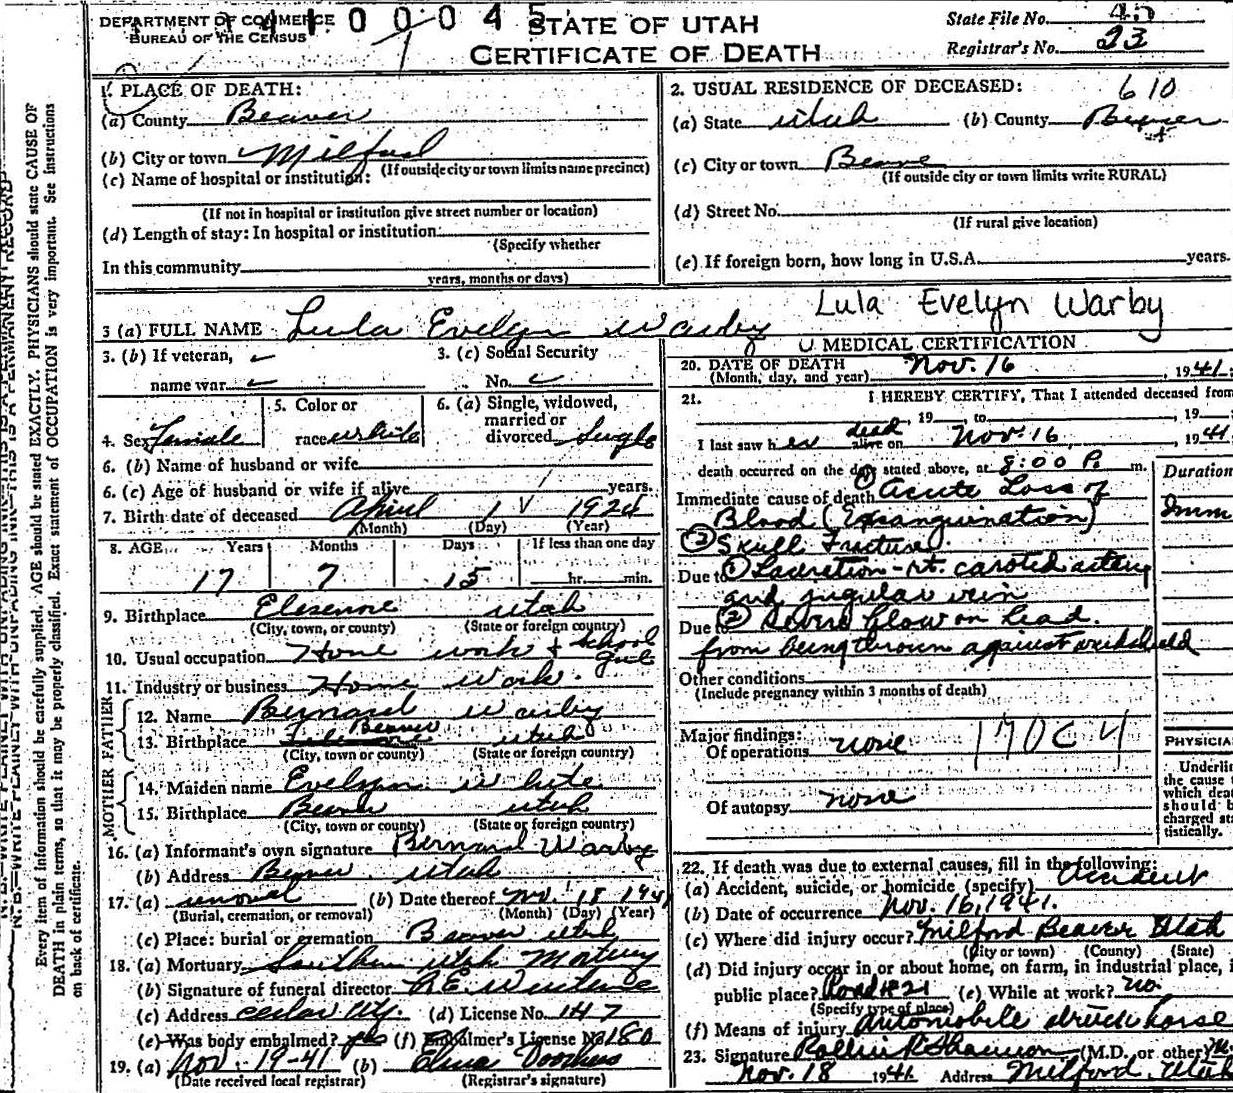 DEPARTMENT OF COMMERCE
BUREAU OF THE CENSUS
41 00 045
STATE OF UTAH
CERTIFICATE OF DEATH
State File No.
Registrar's No. 23
Every item of information should be carefully supplied. AGE should be stated EXACTLY. PHYSICIANS should state CAUSE OF
DEATH in plain terms, so that it may be properly classified. Exact statement of OCCUPATION is very important. See instructions
on back of certificate.
1. PLACE OF DEATH:
(a) County Beaver
(b) City or town Milford
(If outside city or town limits name precinct)
(c) Name of hospital or institution:
(If not in hospital or institution give street number or location)
(d) Length of stay: In hospital or institution
(Specify whether
In this community
years, months or days)
2. USUAL RESIDENCE OF DECEASED: 610
(a) State Utah (b) County Beaver
(c) City or town Beaver
(If outside city or town limits write RURAL)
(d) Street No.
(If rural give location)
(e) If foreign born, how long in U.S.A. years.
3 (a) FULL NAME Lula Evelyn Warby
Lula Evelyn Warby
3. (b) If veteran,
name war
3. (c) Social Security
No.
4. Sex Female
5. Color or
race white
6. (a) Single, widowed,
married or
divorced Single
6. (b) Name of husband or wife
6. (c) Age of husband or wife if alive years.
7. Birth date of deceased April 1 1924
(Month) (Day) (Year)
8. AGE Years Months Days If less than one day
17 7 15 hr. min.
9. Birthplace Elsenore Utah
(City, town, or county) (State or foreign country)
10. Usual occupation Home work + school girl
11. Industry or business Home Work.
FATHER
12. Name Bernard Warby
13. Birthplace Beaver Utah
(City, town or county) (State or foreign country)
MOTHER
14. Maiden name Evelyn White
15. Birthplace Beaver Utah
(City, town or county) (State or foreign country)
16. (a) Informant's own signature Bernard Warby
(b) Address Beaver Utah
17. (a) removal (b) Date thereof Nov. 18 1941
(Burial, cremation, or removal) (Month) (Day) (Year)
(c) Place: burial or cremation Beaver Utah
18. (a) Mortuary Southern Utah Mortuary
(b) Signature of funeral director
(c) Address Cedar City. (d) License No. 147
(e) Was body embalmed? yes (f) Embalmer's License No 180
19. (a) Nov. 19-41 (b) Elma Voorhees
(Date received local registrar) (Registrar's signature)
MEDICAL CERTIFICATION
20. DATE OF DEATH
(Month, day, and year) Nov. 16, 1941
21. I HEREBY CERTIFY, That I attended deceased from
, 19 to , 19
I last saw her dead alive on Nov. 16, 1941
death occurred on the day stated above, at 8:00 P. m.
Duration
Immediate cause of death (1) Acute Loss of
Blood (Exsanguination) Imm
(2) Skull Fracture
Due to (1) Laceration - rt. carotid artery
and jugular vein
Due to (2) Severe blow on head
from being thrown against windshield
Other conditions
(Include pregnancy within 3 months of death)
Major findings:
Of operations none
170C4
Of autopsy none
PHYSICIA
Underlin
the cause t
which deat
should b
charged sta
tistically.
22. If death was due to external causes, fill in the following:
(a) Accident, suicide, or homicide (specify) Accident
(b) Date of occurrence Nov. 16, 1941.
(c) Where did injury occur? Milford Beaver Utah
(City or town) (County) (State)
(d) Did injury occur in or about home, on farm, in industrial place, i
public place? Road #21 (e) While at work? no.
(Specify type of place)
(f) Means of injury Automobile struck horse
23. Signature (M.D. or other)
Nov. 18 1941 Address Milford, Utah